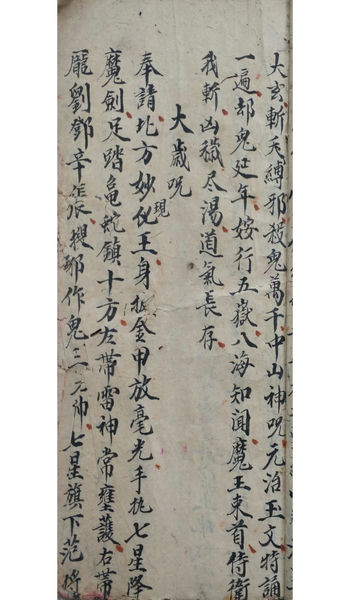 大玄斬夭縛邪殺鬼萬千中山神咒元治玉文特誦
一遍却鬼延年按行五嶽八海知聞魔王東首侍衛
我斬凶穢尽湯道氣長存
大歲咒
奉請北方妙化現王身金甲放毫光手执七星降
魔劍足踏龜蛇鎮十方左帶雷神常壅護右帶
龐劉鄧辛張捉邪作鬼三元帅七星旗下范將